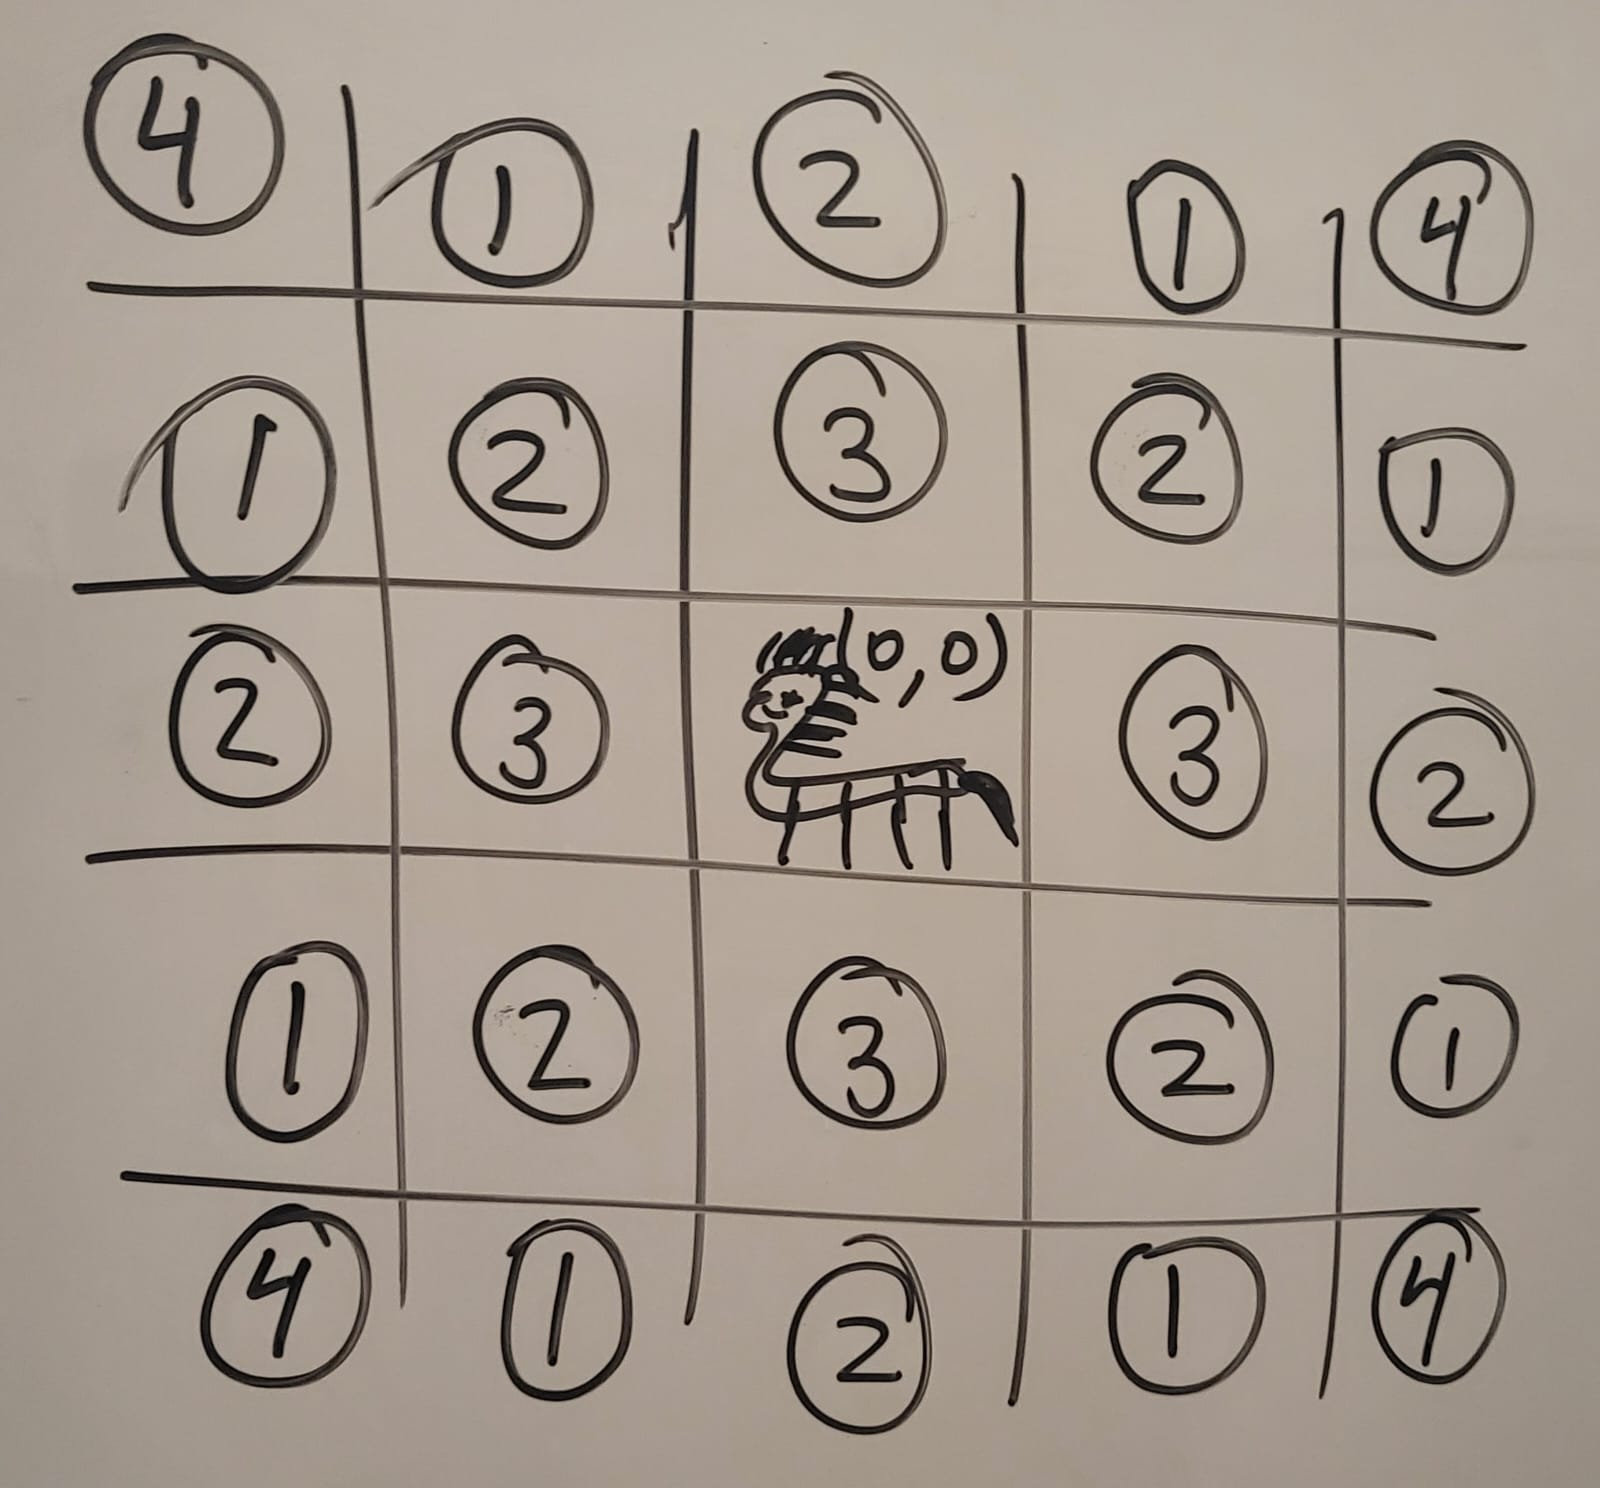 4 1 2 1 4
1 2 3 2 1
2 3 (0,0) 3 2
1 2 3 2 1
4 1 2 1 4